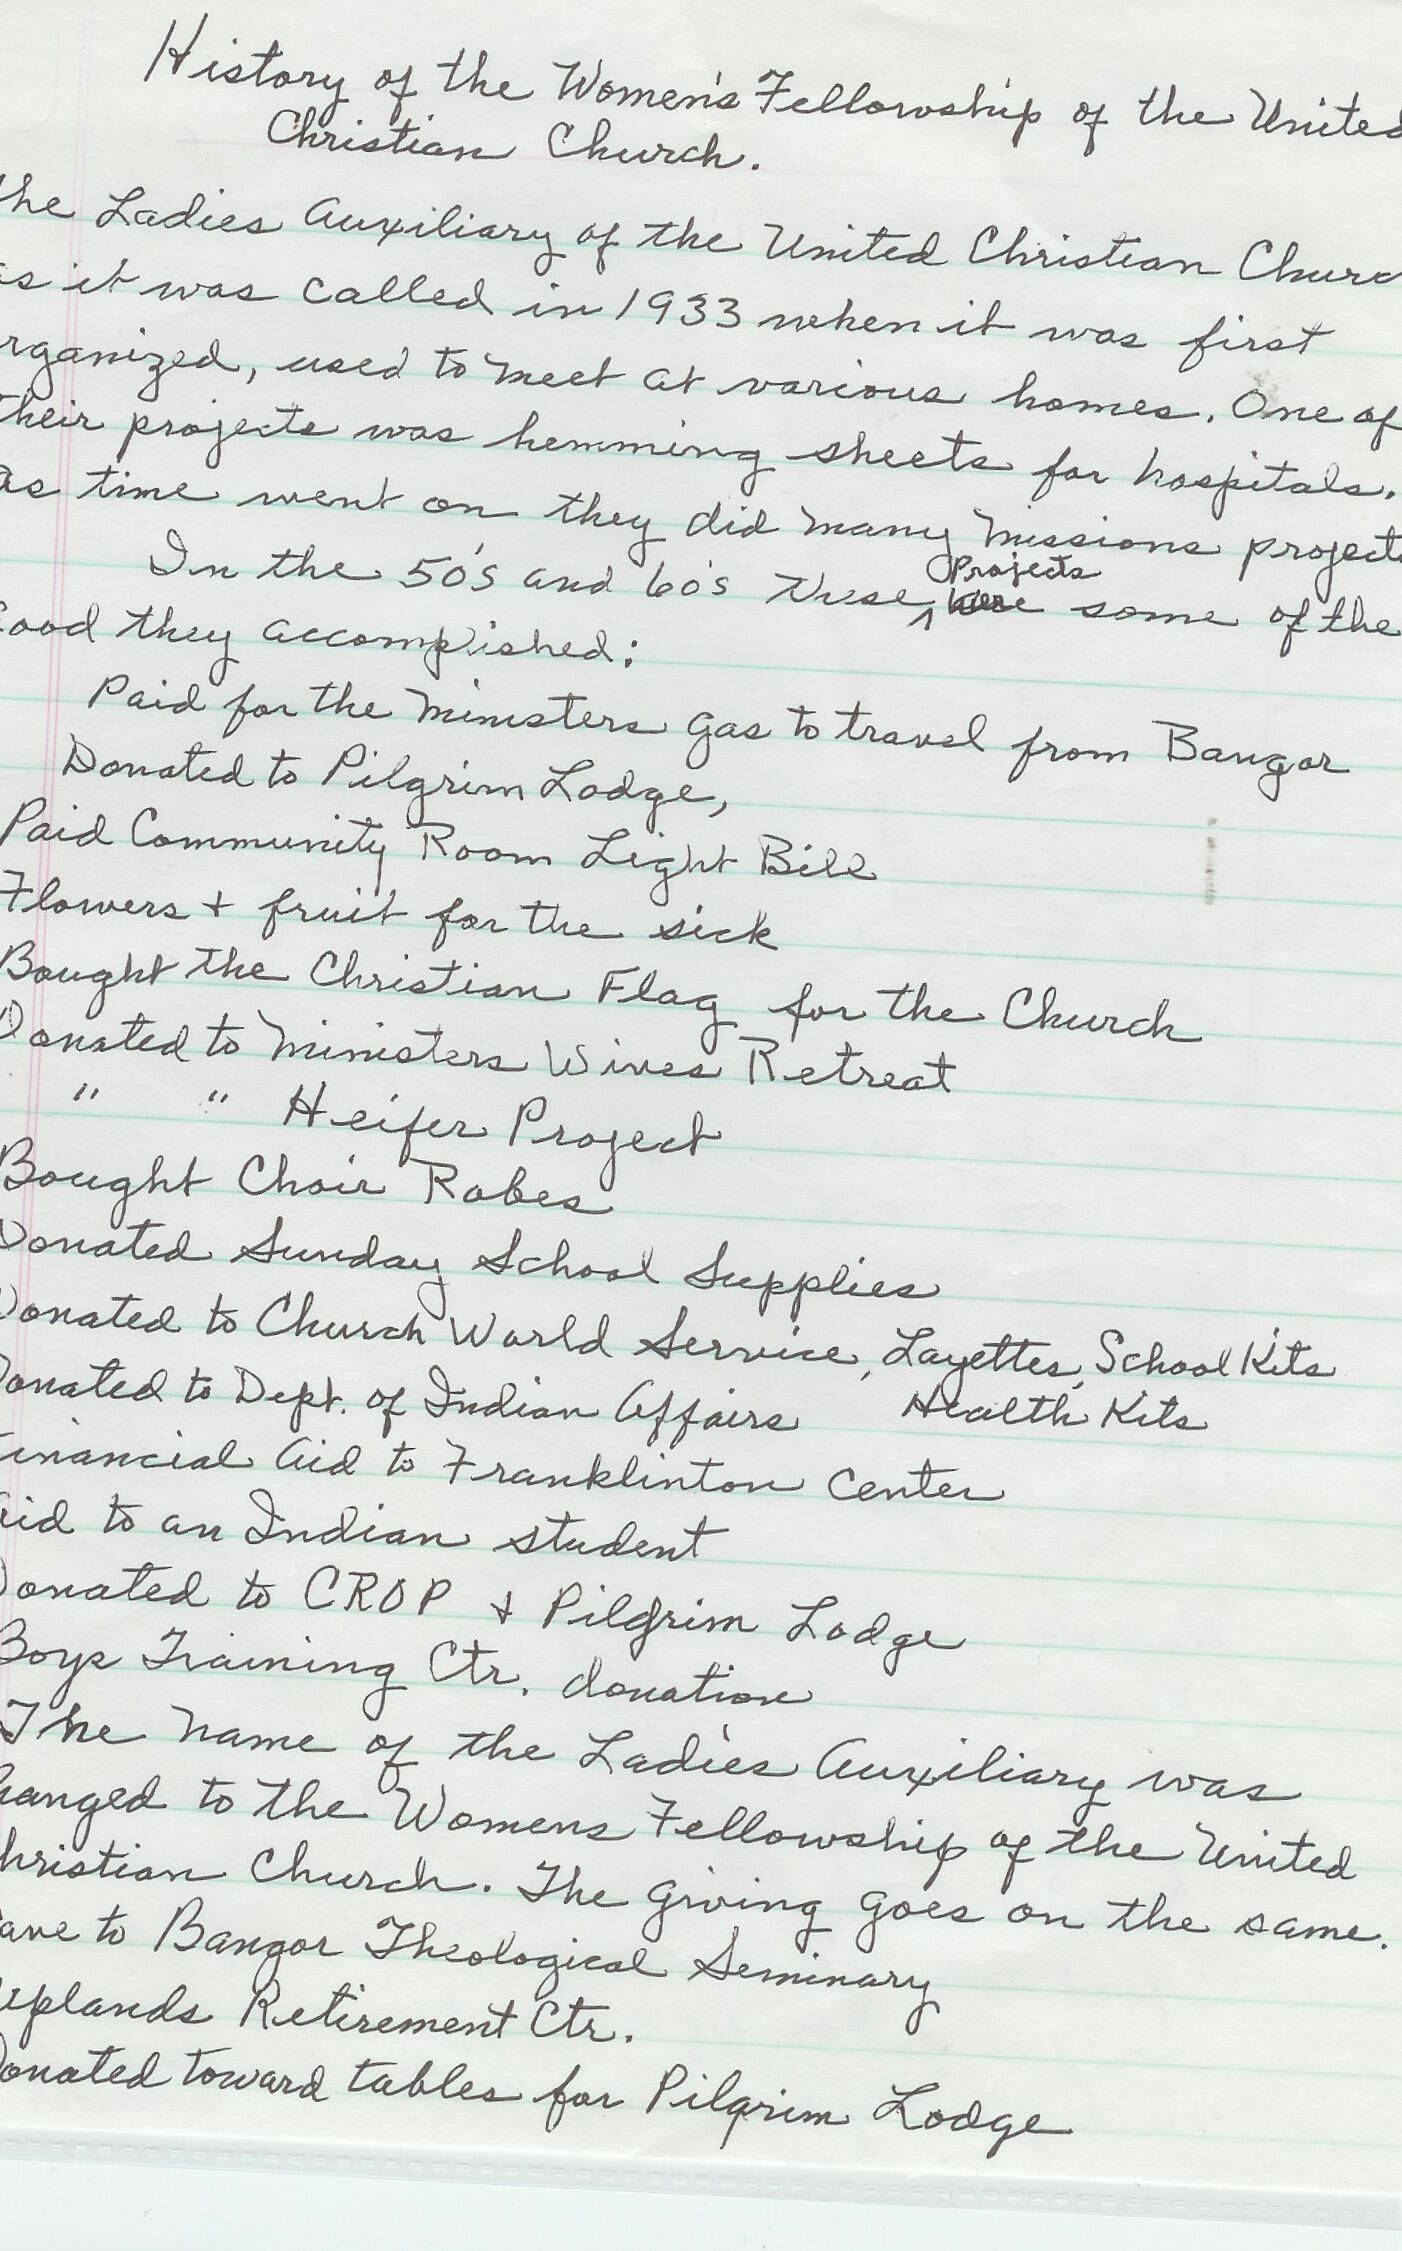 History of the Women's Fellowship of the United
Christian Church.
the Ladies Auxiliary of the United Christian Churc
as it was called in 1933 when it was first
rganized, used to meet at various homes. One of
their projects was hemming sheets for hospitals.
As time went on they did many missions projects
In the 50's and 60's these projects were some of the
Good they accomplished:
Paid for the ministers gas to travel from Bangor
Donated to Pilgrim Lodge,
Paid Community Room Light Bill
Flowers + fruit for the sick
Bought the Christian Flag for the Church
Donated to Ministers Wives Retreat
" " Heifer Project
Bought Choir Robes
Donated Sunday School Supplies
Donated to Church World Service, Layettes, School Kits
Donated to Dept. of Indian Affairs Health Kits
Financial Aid to Franklinton Center
Aid to an Indian student
Donated to CROP + Pilgrim Lodge
Boys Training Ctr. donation
The name of the Ladies Auxiliary was
hanged to the Womens Fellowship of the United
hristian Church. The giving goes on the same.
ave to Bangor Theological Seminary
Uplands Retirement Ctr.
Donated toward tables for Pilgrim Lodge